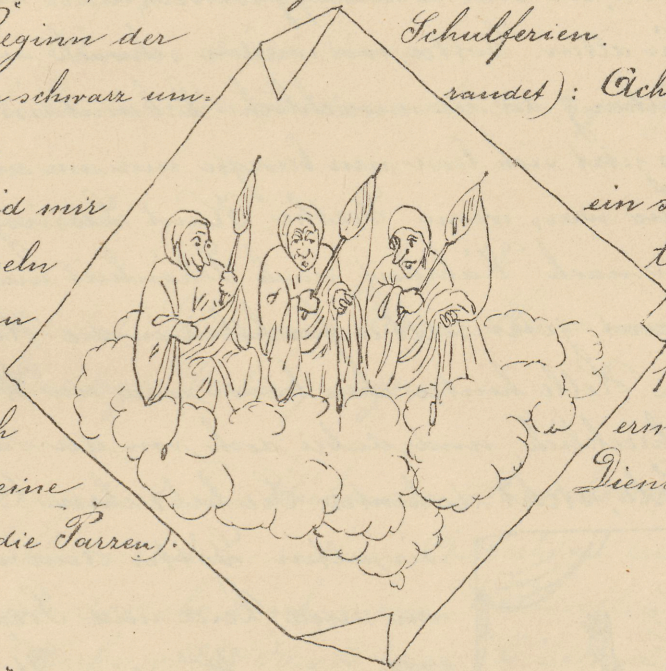 Beginn der Schulferien.
schwarz um= randet): Ach
mir ein s
eln t
n
h erm
eine Diens
(die Parzen).